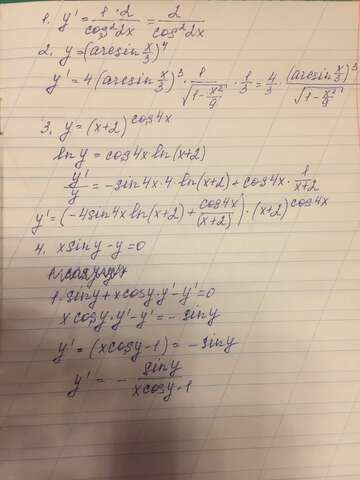 1. y' = 1·2/cos²2x = 2/cos²2x
2. y = (arcsin x/3)⁴
y' = 4(arcsin x/3)³ · 1/√(1-x²/9) · 1/3 = 4/3 · (arcsin x/3)³/√(1-x²/9)
3. y = (x+2)^cos4x
ln y = cos4x ln(x+2)
y'/y = -sin4x·4·ln(x+2) + cos4x · 1/(x+2)
y' = (-4sin4x ln(x+2) + cos4x/(x+2)) · (x+2)^cos4x
4. x siny - y = 0
1·siny + x cosy·y' - y' = 0
x cosy·y' - y' = -siny
y' = (x cosy - 1) = -siny
y' = - siny/(x cosy - 1)